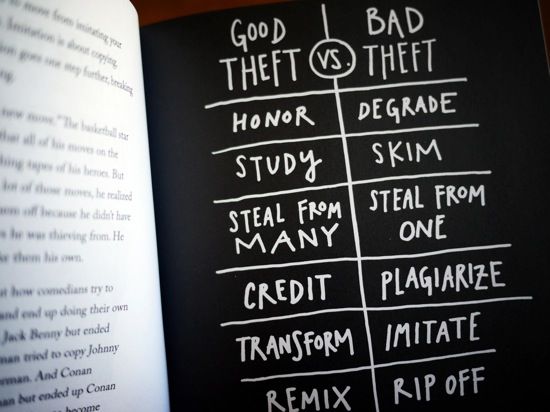 to move from imitating your
Imitation is about copying.
goes one step further, breaking
new move." The basketball star
that all of his moves on the
tapes of his heroes. But
lot of those moves, he realized
off because he didn't have
he was thieving from. He
them his own.
how comedians try to
and end up doing their own
Jack Benny but ended
tried to copy Johnny
And Conan
but ended up Conan
become
GOOD THEFT
VS.
BAD THEFT
HONOR
DEGRADE
STUDY
SKIM
STEAL FROM
MANY
STEAL FROM
ONE
CREDIT
PLAGIARIZE
TRANSFORM
IMITATE
REMIX
RIP OFF